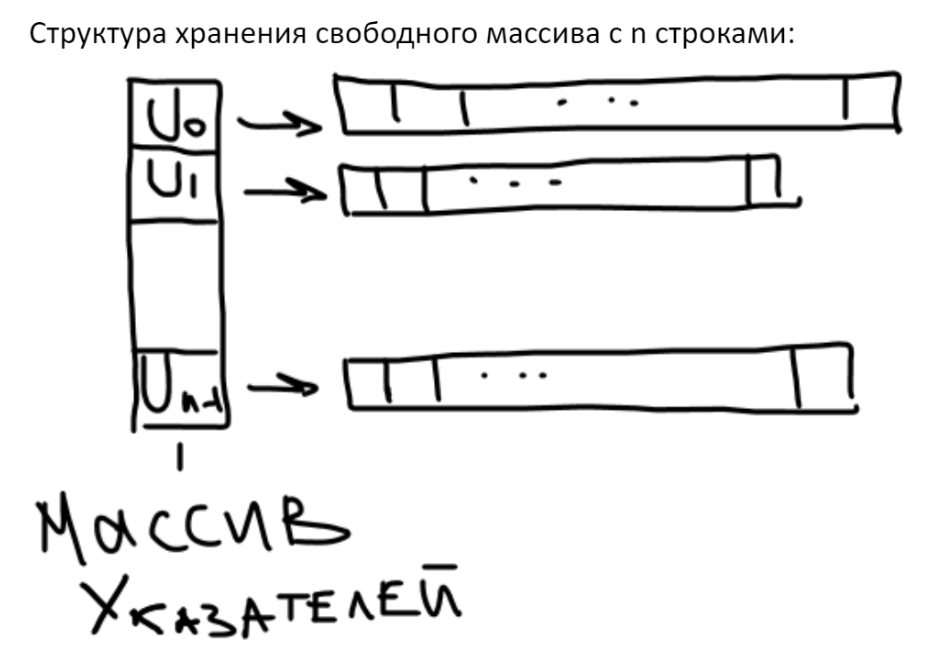 Структура хранения свободного массива с n строками:
U0
U1
Un-1
Массив
Указателей